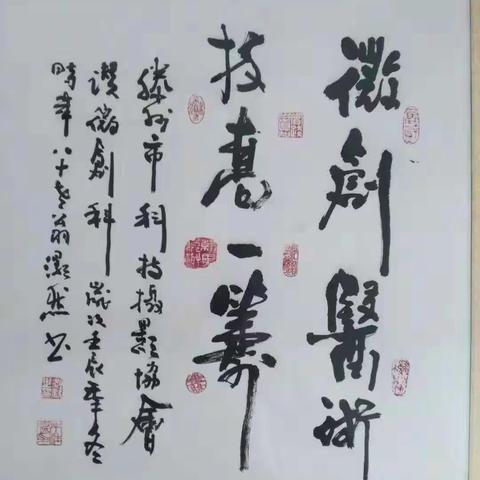 微創醫術
技高一籌
滕州市科技攝影協會
讚微創科 歲次壬辰季冬
時年八十老翁然书